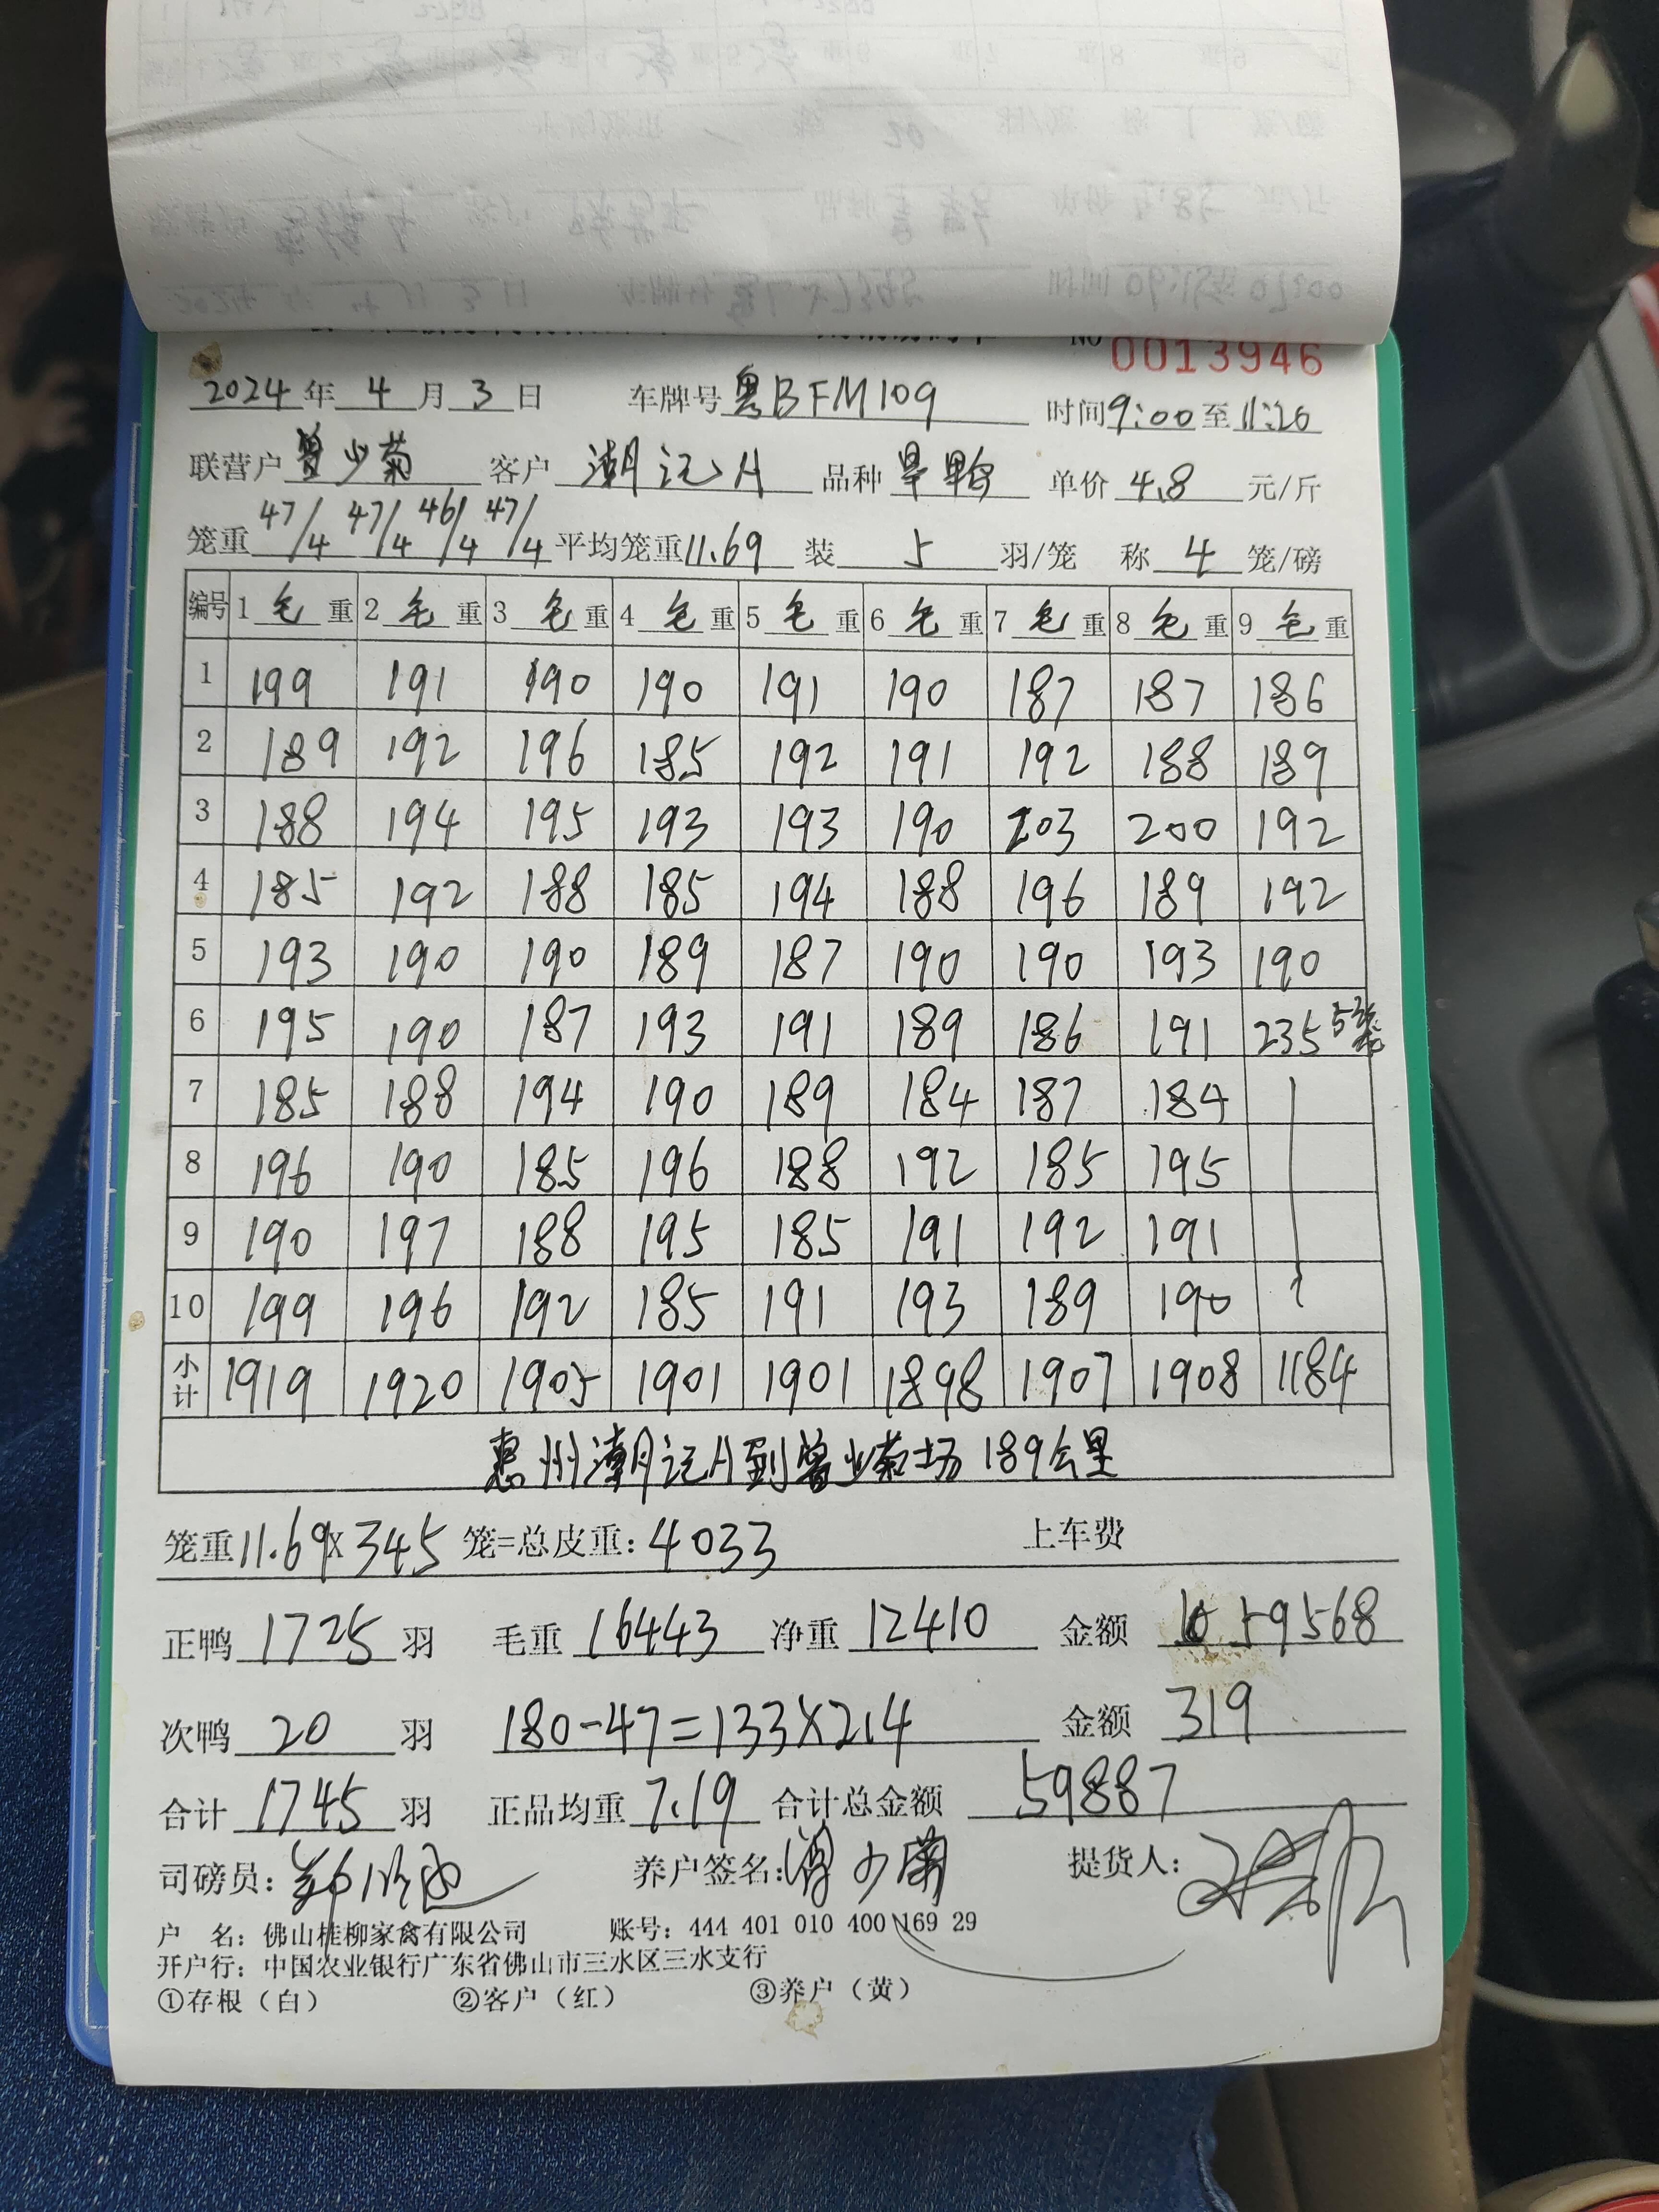 No 0013946
2024年4月3日 车牌号粤BFM109 时间9:00至11:20
联营户曾少菊 客户潮记A 品种旱鸭 单价4.8元/斤
笼重47/4 47/4 46/4 47/4 平均笼重11.69 装5羽/笼 称4笼/磅
编号 1毛重 2毛重 3毛重 4毛重 5毛重 6毛重 7毛重 8毛重 9毛重
1 199 191 190 190 191 190 187 187 186
2 189 192 196 185 192 191 192 188 189
3 188 194 195 193 193 190 203 200 192
4 185 192 188 185 194 188 196 189 192
5 193 190 190 189 187 190 190 193 190
6 195 190 187 193 191 189 186 191 235 5笼
7 185 188 194 190 189 184 187 184
8 196 190 185 196 188 192 185 195
9 190 197 188 195 185 191 192 191
10 199 196 192 185 191 193 189 190
小计 1919 1920 1905 1901 1901 1898 1907 1908 1184
惠州潮记A到曾少菊场189公里
笼重11.69X345笼=总皮重:4033 上车费
正鸭1725羽 毛重16443 净重12410 金额59568
次鸭20羽 180-47=133X2.4 金额319
合计1745羽 正品均重7.19 合计总金额59887
司磅员: 养户签名:曾少菊 提货人:
户 名:佛山桂柳家禽有限公司 账号:444 401 010 400 169 29
开户行:中国农业银行广东省佛山市三水区三水支行
①存根(白) ②客户(红) ③养户(黄)